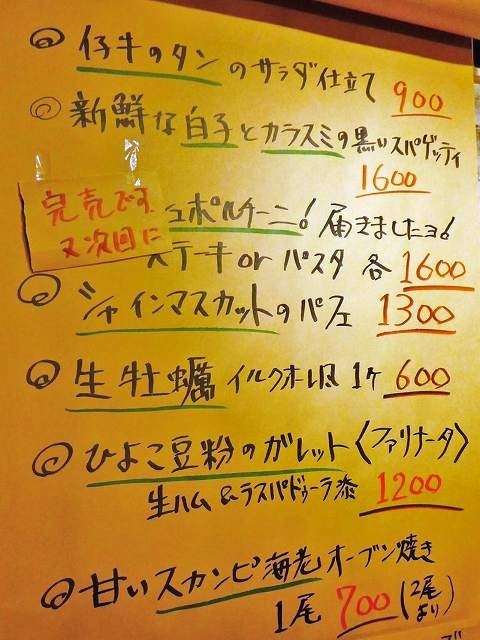 仔牛のタンのサラダ仕立て 900
新鮮な白子とカラスミの黒いスパゲッティ
1600
完売です
又次回に
ュポルチーニ! 届きましたヨ!
ステーキor パスタ 各 1600
シャインマスカットのパフェ 1300
生牡蠣 イルクオーレ風 1ケ 600
ひよこ豆粉のガレット〈ファリナータ〉
生ハム&ラスパドゥーラ添 1200
甘いスカンピ海老オーブン焼き
1尾 700 (2尾より)